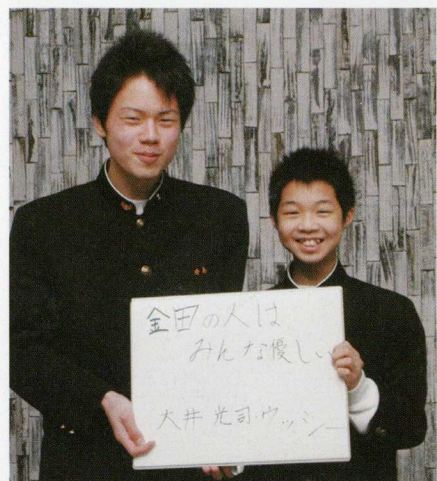 金田の人は
みんな優しい
大井 光司・ウッシー